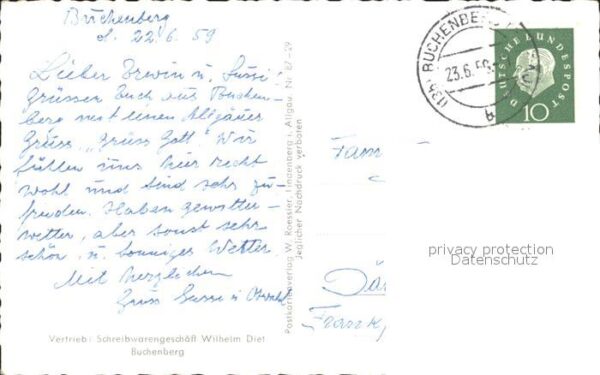 Buchenberg
d. 22.6.59
Lieber Erwin u. Susi!
Grüssen Euch aus Buchen-
berg mit einem Allgäuer
Gruss, "Grüss Gott" Wir
fühlen uns hier recht
wohl und sind sehr zu-
frieden. Haben gewitter-
wetter, aber sonst sehr
schön u. sonniges Wetter.
Mit herzlichen
Gruss u.
Vertrieb: Schreibwarengeschäft Wilhelm Diet
Buchenberg
Postkartenverlag W. Roessler, Lindenberg i. Allgäu. Nr. 87-29
Jeglicher Nachdruck verboten
(13b) BUCHENBERG
23.6.59
DEUTSCHE BUNDESPOST
10
Fam
privacy protection
Datenschutz
Frankf